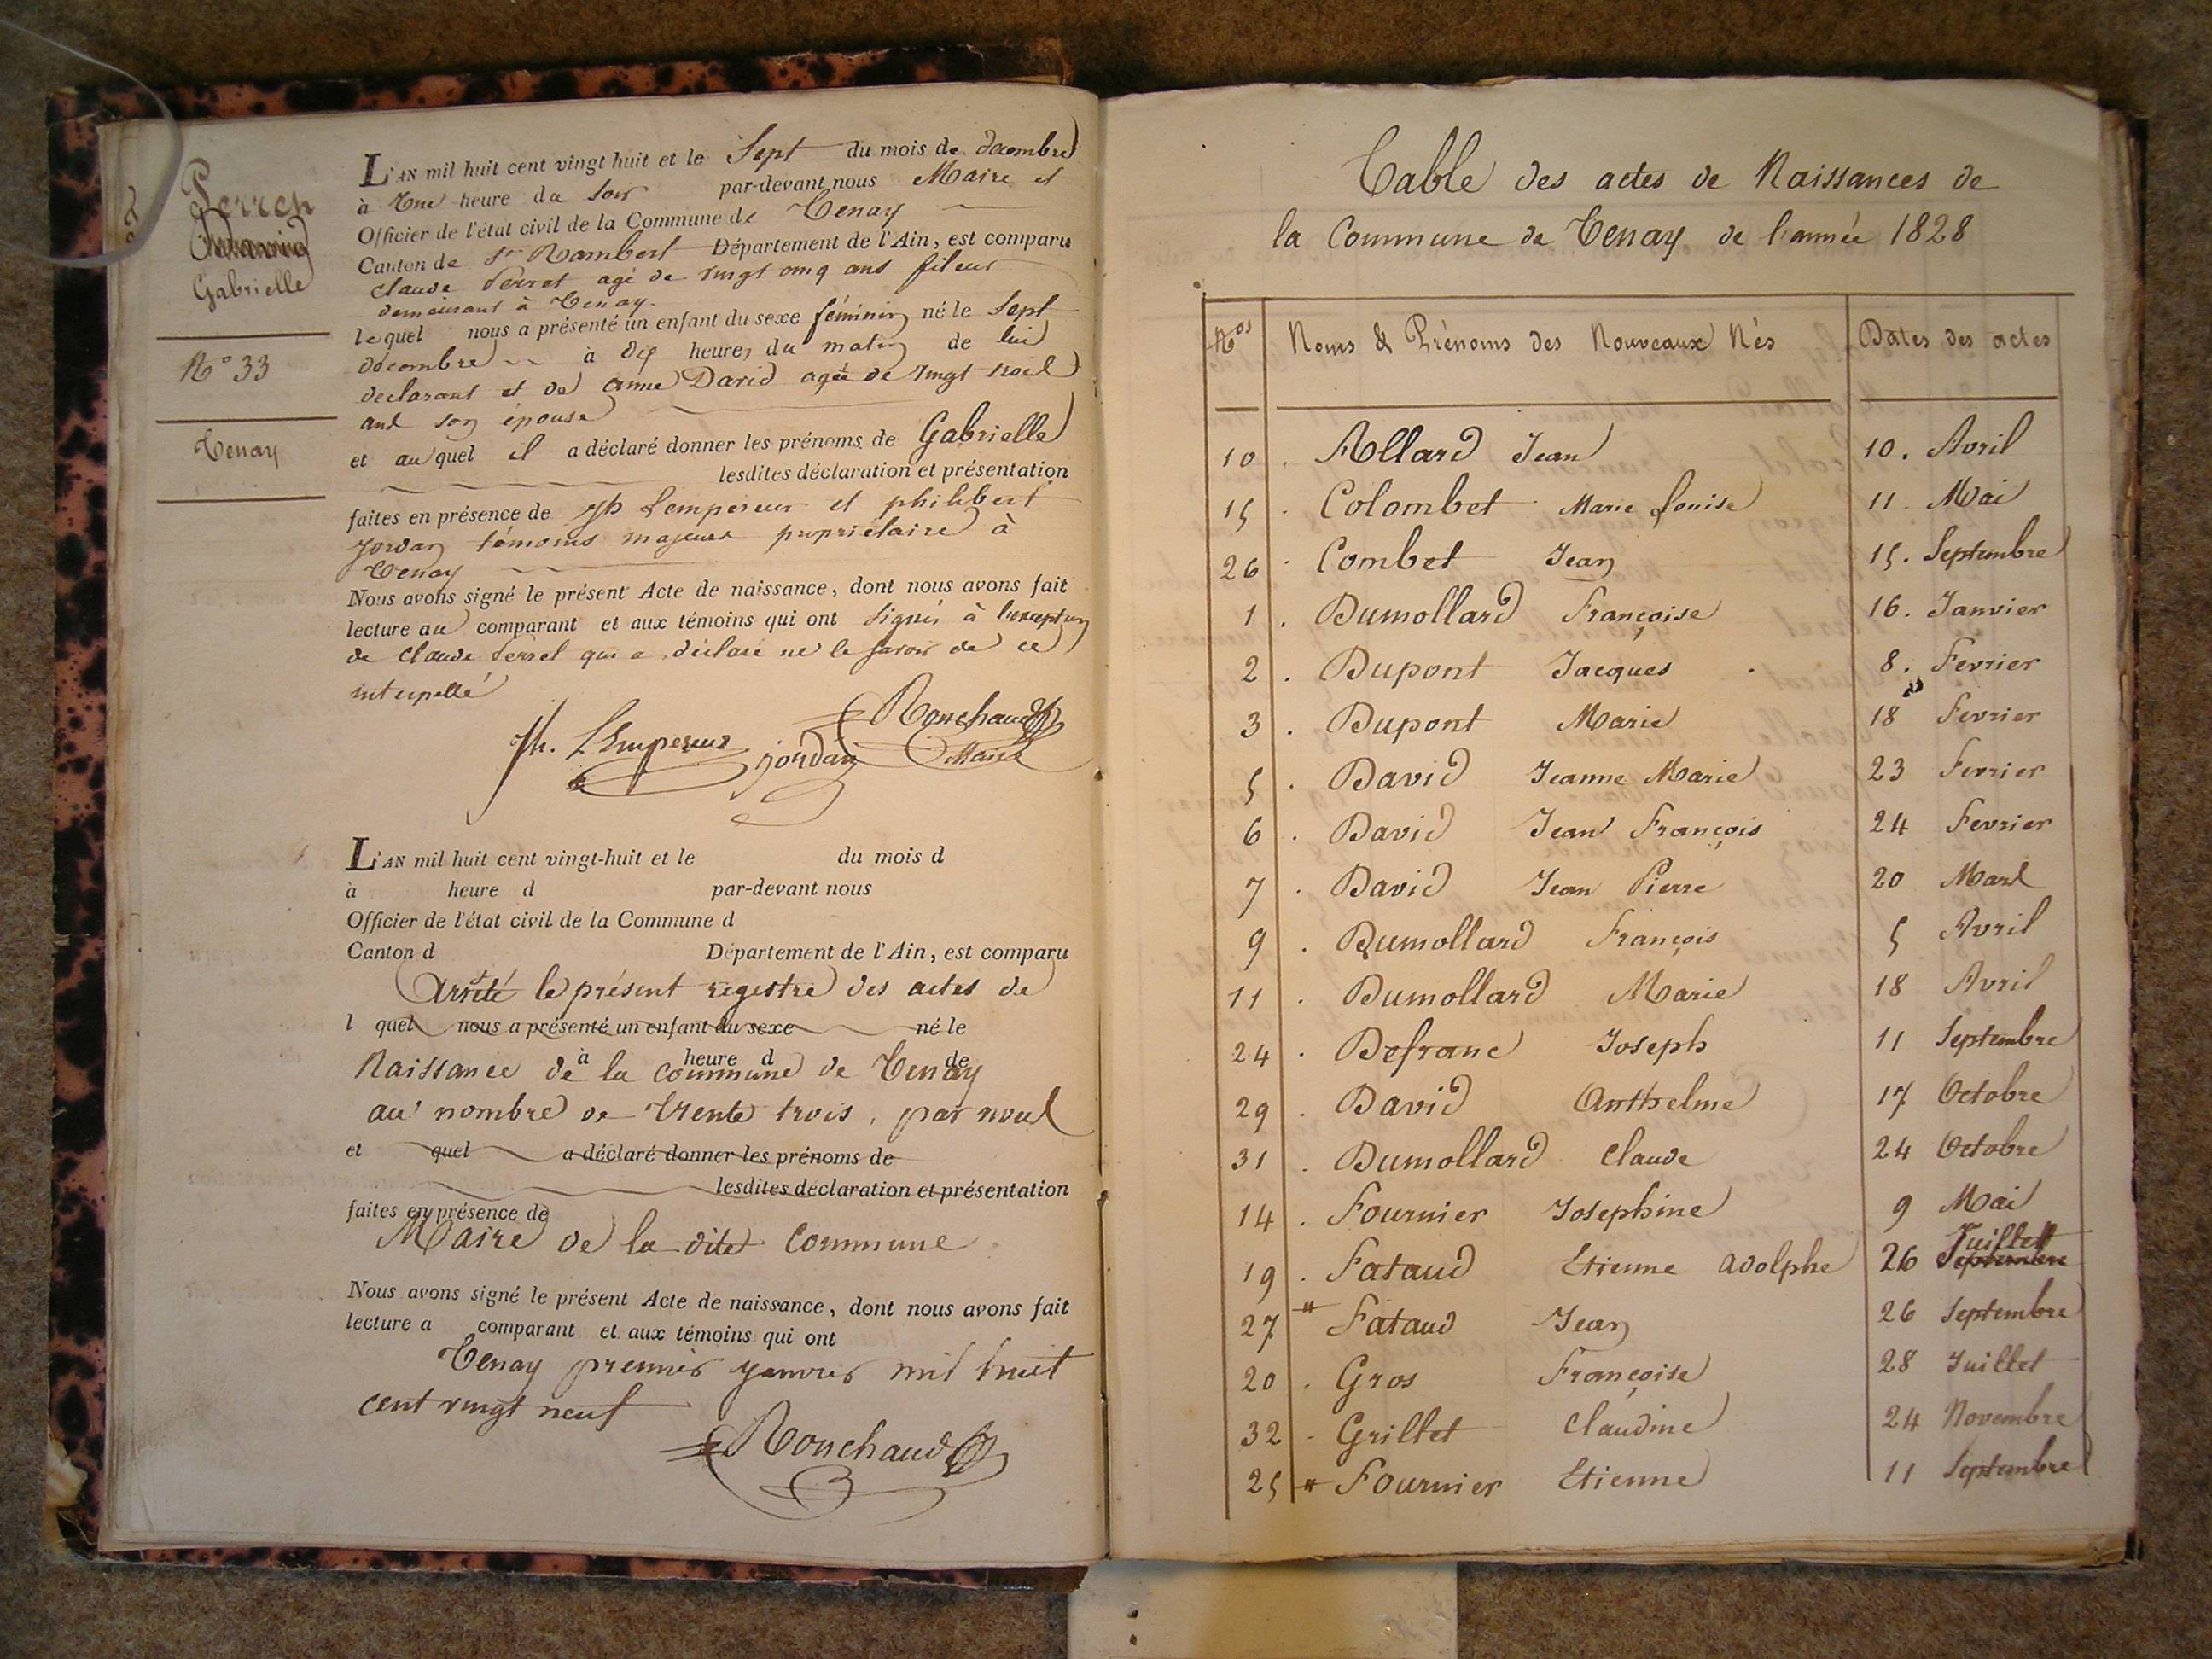 Perret
Gabrielle
N° 33
Tenay
L'AN mil huit cent vingt huit et le Sept du mois de decembre
à Une heure du soir par-devant nous Maire et
Officier de l'état civil de la Commune de Tenay
Canton de St Rambert Département de l'Ain, est comparu
claude Perret agé de vingt cinq ans fileur
demeurant à Tenay
lequel nous a présenté un enfant du sexe féminin né le Sept
décembre à dix heures du matin de lui
declarant et de anne David agée de vingt
ans son épouse
et auquel il a déclaré donner les prénoms de Gabrielle
lesdites déclaration et présentation
faites en présence de Jh Lempereur et philibert
Jordan témoins majeurs propriétaire à
Tenay
Nous avons signé le présent Acte de naissance, dont nous avons fait
lecture au comparant et aux témoins qui ont signés à l'exception
de Claude Perret qui a déclaré ne le savoir de ce
interpellé
Jh. LEmpereur jordan Ronchaud
Maire
L'AN mil huit cent vingt-huit et le du mois d
à heure d par-devant nous
Officier de l'état civil de la Commune d
Canton d Département de l'Ain, est comparu
Arrêté le présent registre des actes de
l quel nous a présenté un enfant du sexe né le
à heure d de
Naissance de la commune de Tenay
au nombre de trente trois, par nous
et quel a déclaré donner les prénoms de
lesdites déclaration et présentation
faites en présence de
Maire de la dite Commune
Nous avons signé le présent Acte de naissance, dont nous avons fait
lecture a comparant et aux témoins qui ont
Tenay premier janvier mil huit
cent vingt neuf
Ronchaud
Table des actes de Naissances de
la Commune de Tenay de l'année 1828
Nos Noms & Prénoms des Nouveaux Nés Dates des actes
10 . Allard Jean 10. Avril
15 . Colombet Marie Louise 11. Mai
26 . Combet Jean 15. Septembre
1 . Dumollard Françoise 16. Janvier
2 . Dupont Jacques 8. Fevrier
3 . Dupont Marie 18 Fevrier
5 . David Jeanne Marie 23 Fevrier
6 . David Jean François 24 Fevrier
7 . David Jean Pierre 20 Mars
9 . Dumollard François 5 Avril
11 . Dumollard Marie 18 Avril
24 . Defranc Joseph 11 Septembre
29 . David Anthelme 17 Octobre
31 . Dumollard Claude 24 Octobre
14 . Fournier Josephine 9 Mai
19 . Fataud Etienne Adolphe 26 Septembre Juillet
27 " Fataud Jean 26 Septembre
20 . Gros Françoise 28 Juillet
32 - Grillet Claudine 24 Novembre
25 " Fournier Etienne 11 Septembre